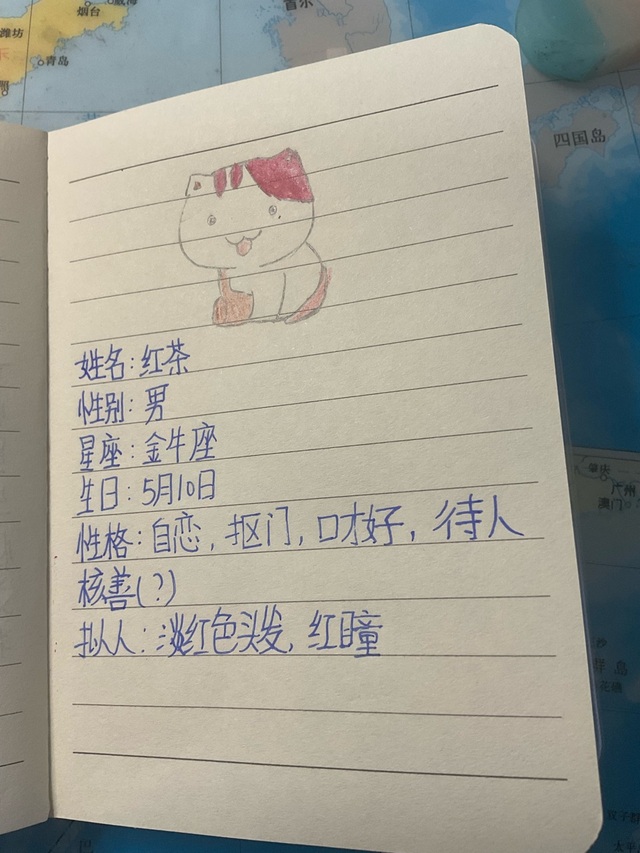 烟台
威海
潍坊
青岛
首尔
四国岛
姓名:红茶
性别:男
星座:金牛座
生日:5月10日
性格:自恋,抠门,口才好,待人
核善(?)
拟人:淡红色头发,红瞳
肇庆
广州
澳门
群岛